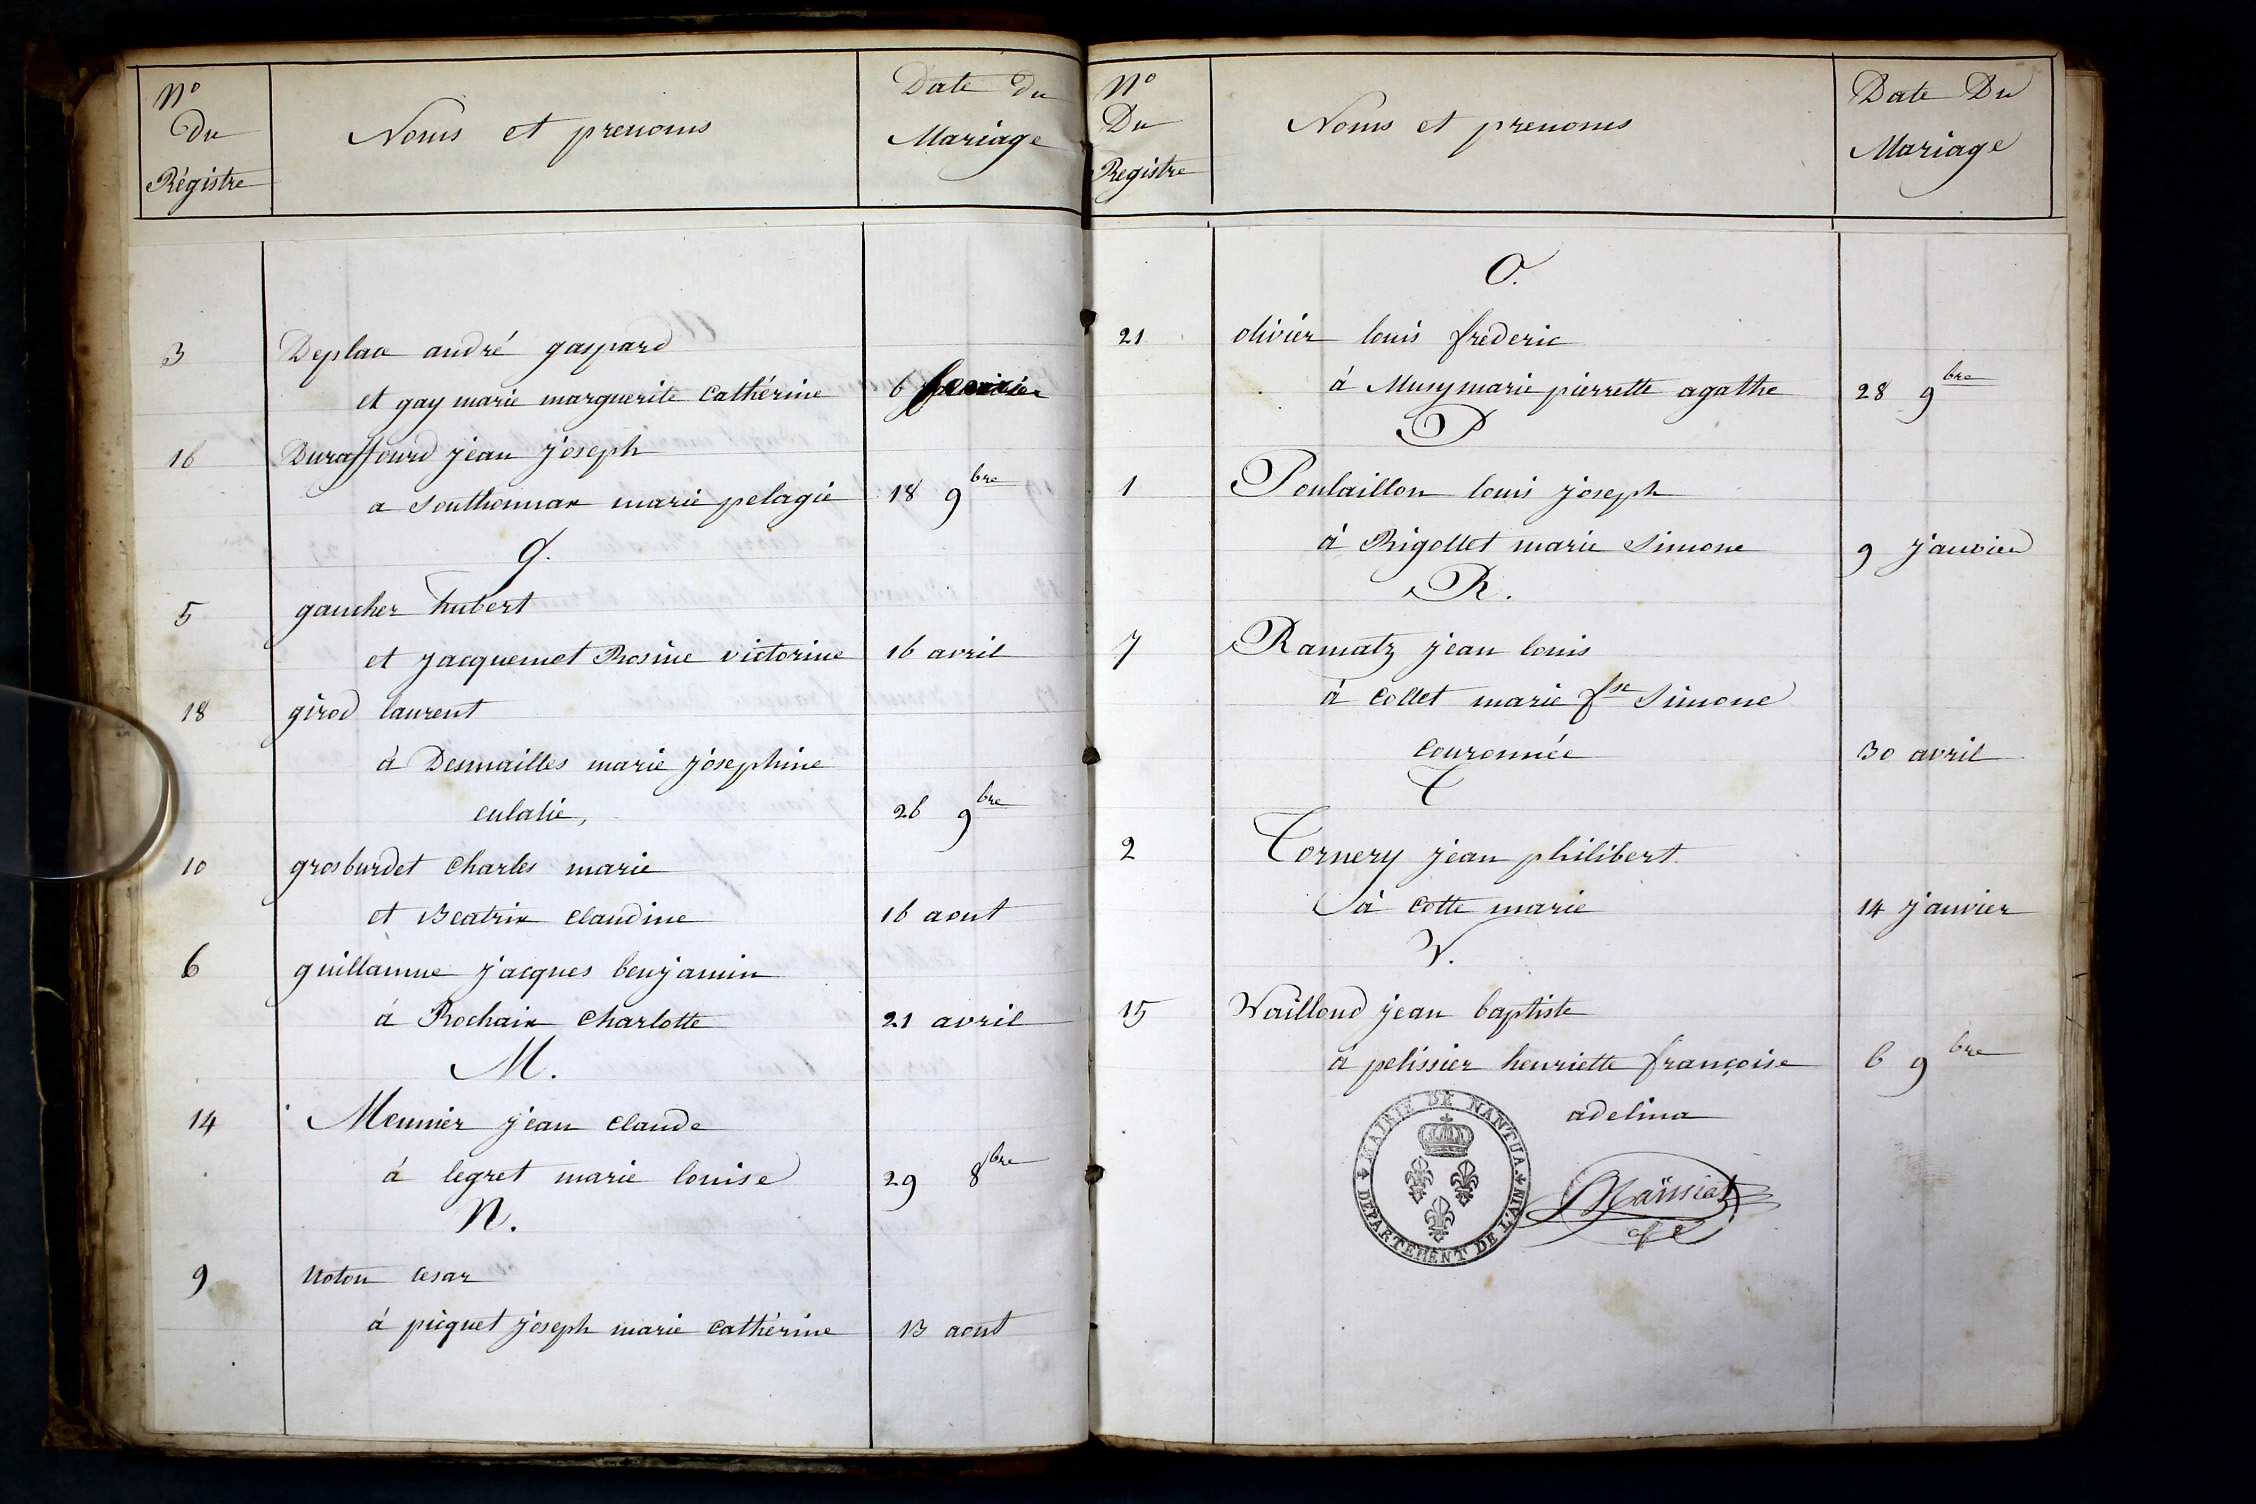 N° Du Régistre
Noms et prenoms
Date du Mariage
3 Deplace andré gaspard
et gay marie marguerite Cathérine 6 fevrier
16 Duraffourd jean joseph
a Southonnax marie pelagie 18 9bre
G.
5 gaucher hubert
et jacquemet Rosine victorine 16 avril
18 girod laurent
à Desmailles marie joséphine
eulalie, 26 9bre
10 grosburdet Charles marie
et Beatrix Claudine 16 aout
6 guillaume jacques benjamin
à Rochaix Charlotte 21 avril
M.
14 Meunier jean Claude
à legret marie louise 29 8bre
N.
9 Noton Cesar
à picquet joseph marie Cathérine 13 aout
N° Du Registre
Noms et prenoms
Date Du Mariage
O.
21 olivier louis frederic
à Musy marie pierrette agathe 28 9bre
P
1 Poulaillon louis joseph
à Rigollet marie Simone 9 janvier
R.
7 Ramatz jean louis
à Collet marie fse Simone
Couronnée 30 avril
T
2 Tornery jean philibert
à Cotte marie 14 janvier
V.
15 Vailloud jean baptiste
à pelissier henriette françoise 6 9bre
adelina
MAIRIE DE NANTUA.
DEPARTEMENT DE L'AIN